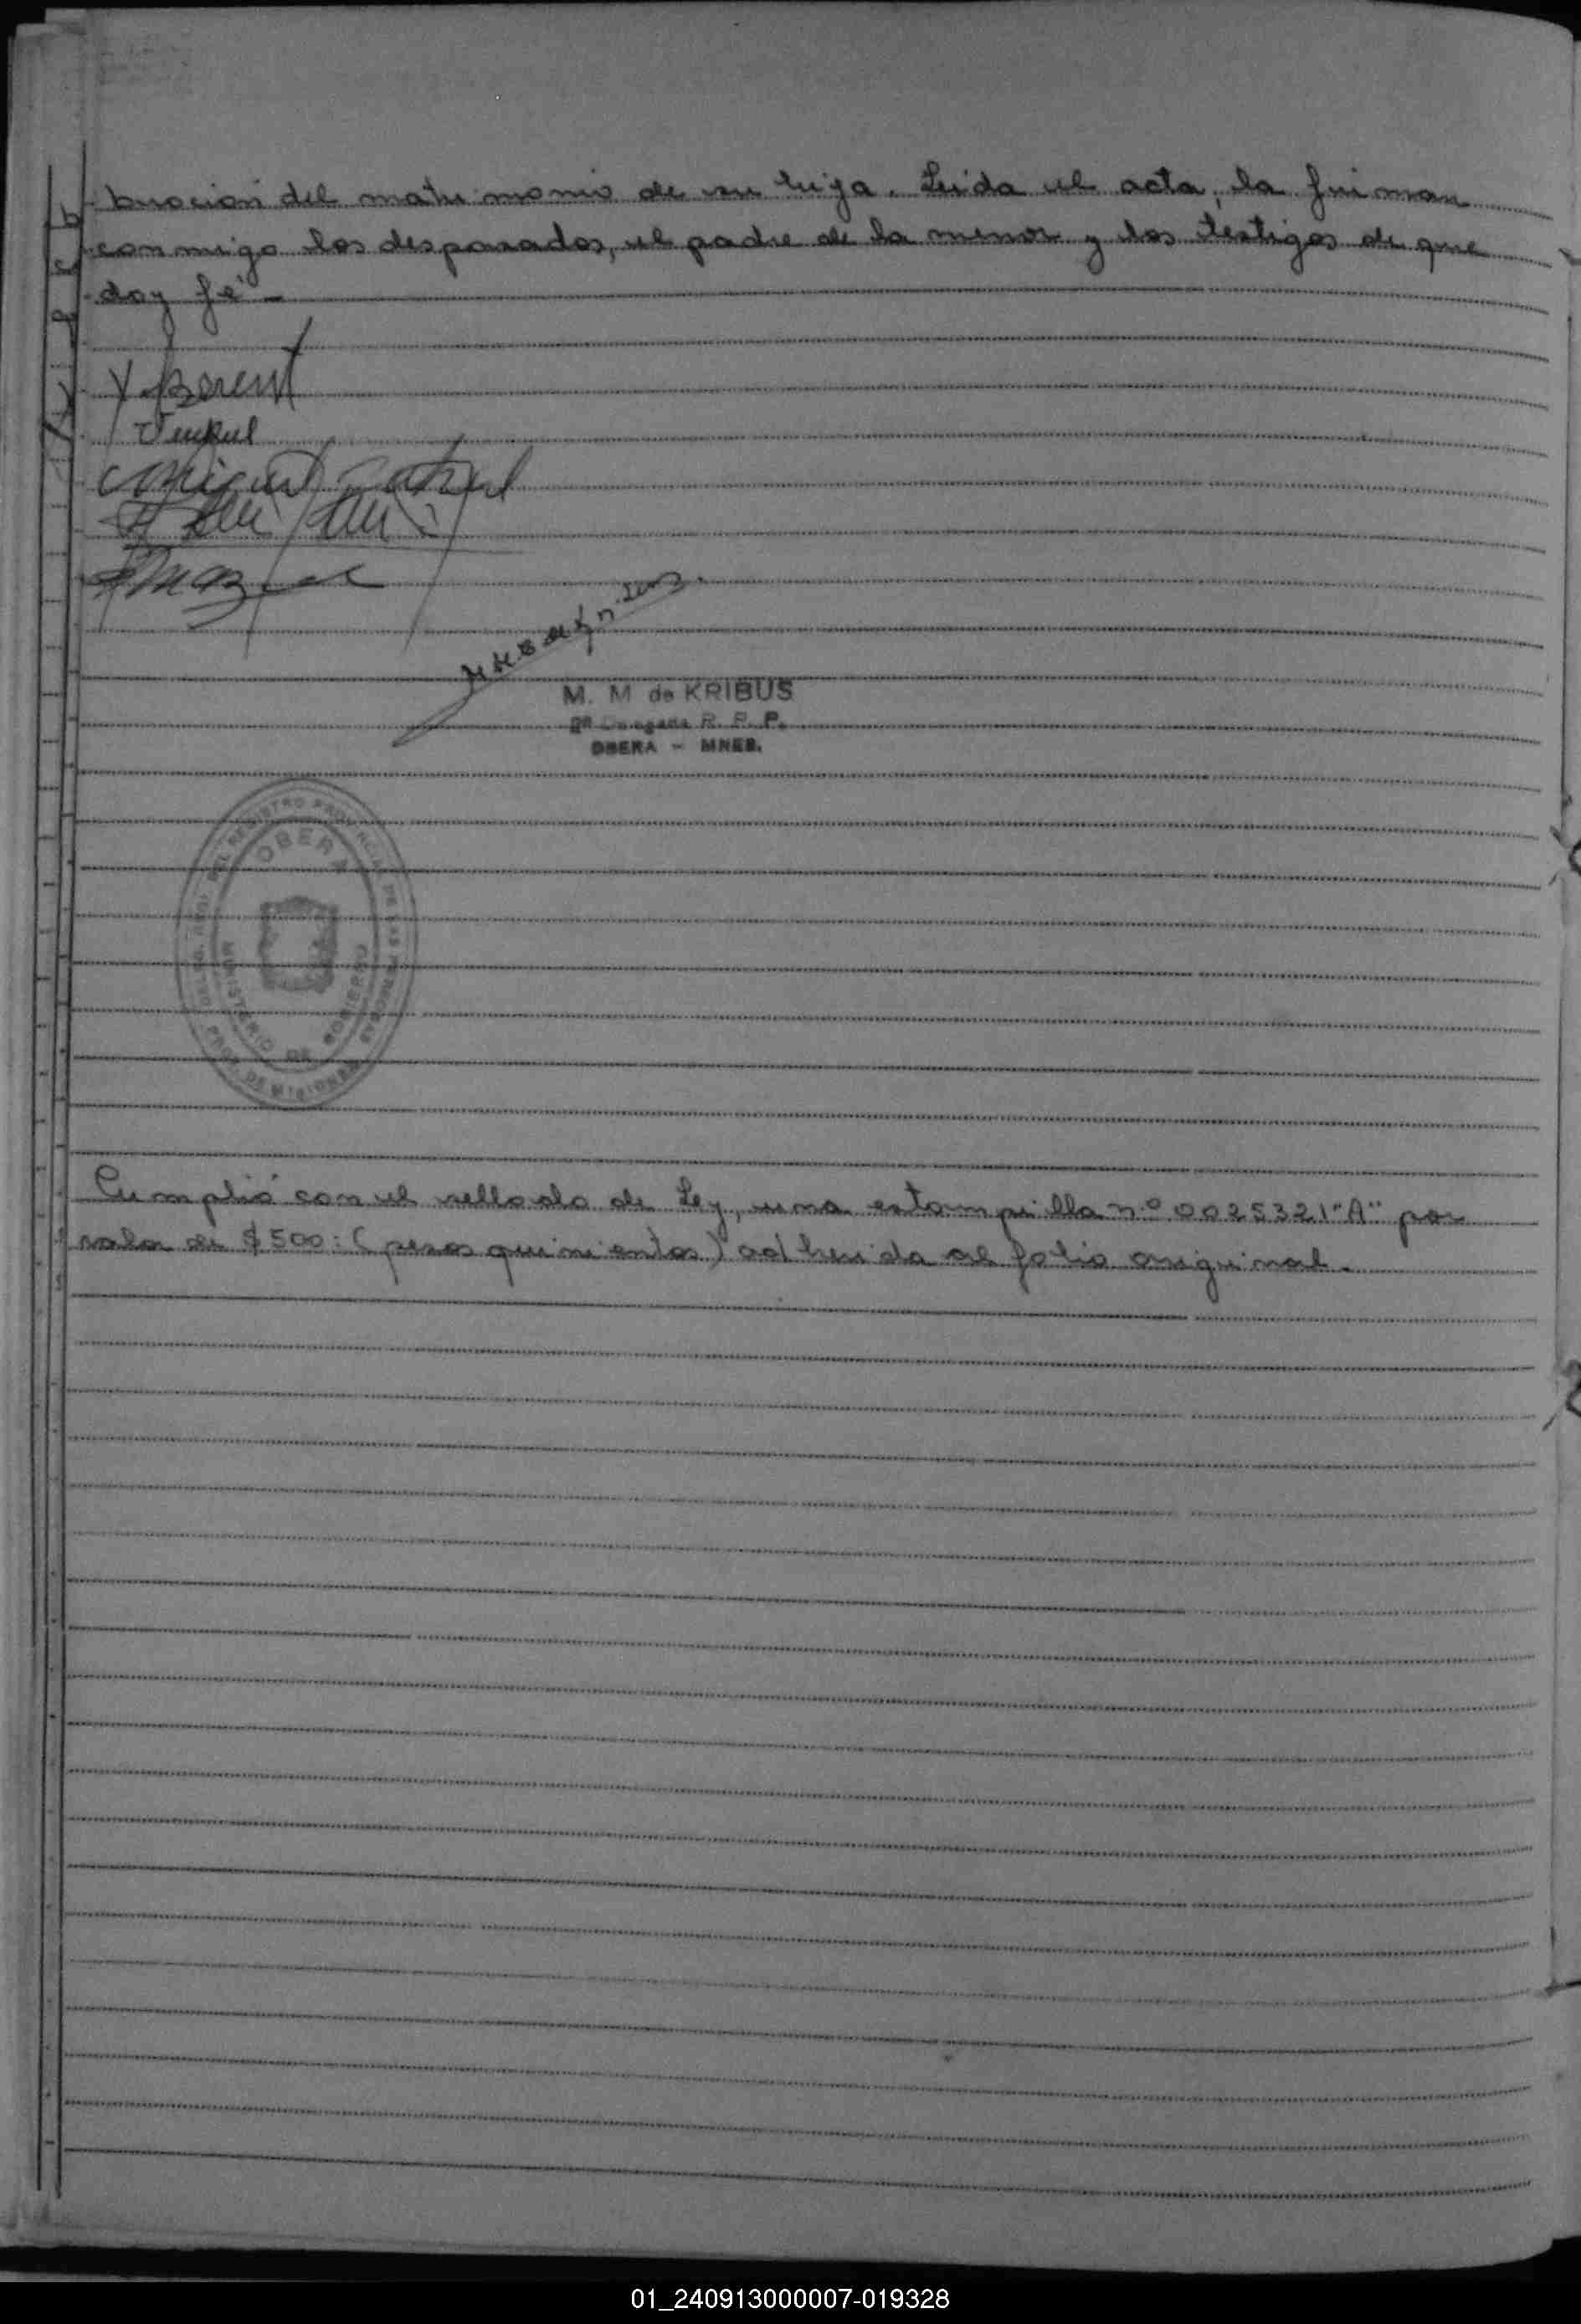 bración del matrimonio de su hija. Leida el acta, la firman
conmigo los desposados, el padre de la menor y los testigos de que
doy fé -
M. M de KRIBUS
Delegada R. P. P.
OBERA - MNES.
DEL REGISTRO PROVINCIAL DE LAS PERSONAS
OBERA
MINISTERIO DE GOBIERNO
PROV. DE MISIONES
Cumplió con el sellado de Ley, una estampilla nº 0025321 "A" por
valor de $500: (pesos quinientos) adherida al folio original.
01_240913000007-019328